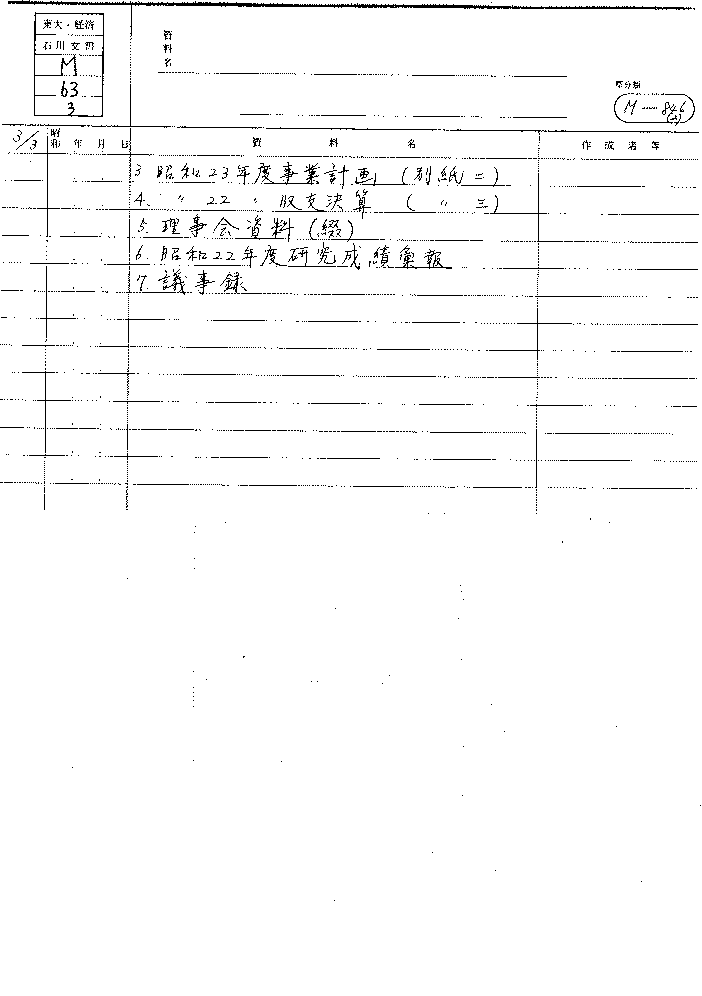 東大・経済
石川文書
M
63
3
資料名
原分類
M-846
3/3 昭和 年 月 日 資料名 作成者等
3 昭和23年度事業計画 (別紙二)
4. 〃 22 〃 収支決算 ( 〃 三)
5. 理事会資料 (綴)
6. 昭和22年度研究成績彙報
7. 議事録